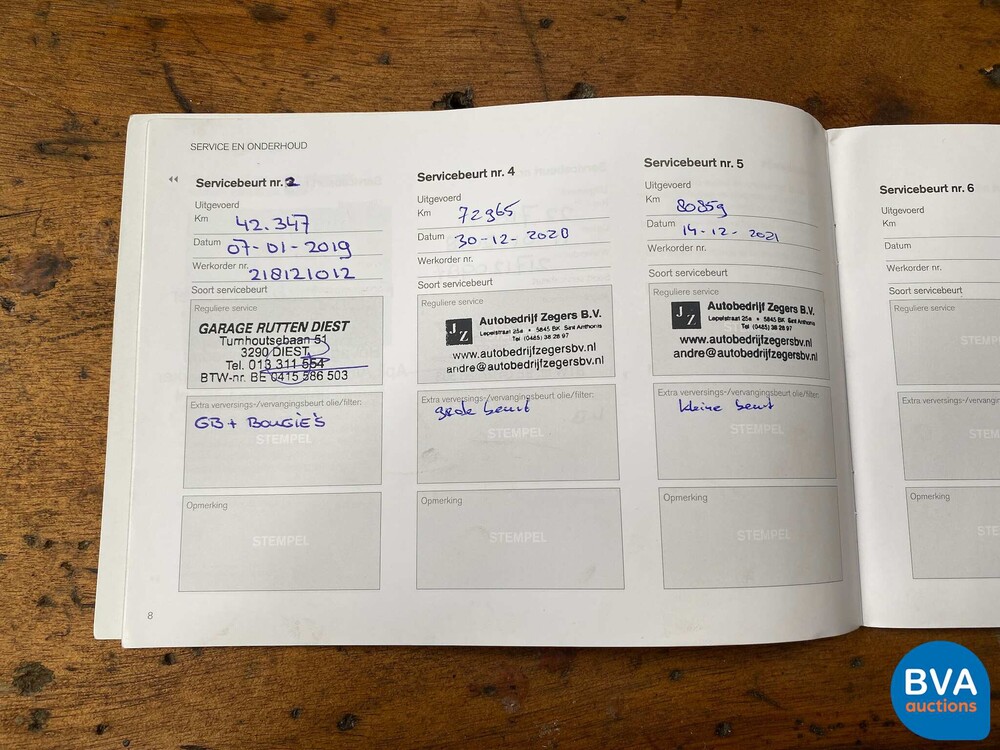 SERVICE EN ONDERHOUD
Servicebeurt nr. 2
Uitgevoerd
Km 42.347
Datum 07-01-2019
Werkorder nr. 218121012
Soort servicebeurt
Reguliere service
GARAGE RUTTEN DIEST
Turnhoutsebaan 51
3290 DIEST
Tel. 013 311 554
BTW-nr. BE 0415 586 503
Extra verversings-/vervangingsbeurt olie/filter:
GB + BOUGIE'S
STEMPEL
Opmerking
STEMPEL
8
Servicebeurt nr. 4
Uitgevoerd
Km 72965
Datum 30-12-2020
Werkorder nr.
Soort servicebeurt
Reguliere service
JZ
Autobedrijf Zegers B.V.
Lepelstraat 25a • 5845 BK Sint Anthonis
Tel (0485) 38 28 97
www.autobedrijfzegersbv.nl
andre@autobedrijfzegersbv.nl
Extra verversings-/vervangingsbeurt olie/filter:
grote beurt
STEMPEL
Opmerking
STEMPEL
Servicebeurt nr. 5
Uitgevoerd
Km 80859
Datum 14-12-2021
Werkorder nr.
Soort servicebeurt
Reguliere service
JZ
Autobedrijf Zegers B.V.
Lepelstraat 25a • 5845 BK Sint Anthonis
Tel (0485) 38 28 97
www.autobedrijfzegersbv.nl
andre@autobedrijfzegersbv.nl
Extra verversings-/vervangingsbeurt olie/filter:
kleine beurt
STEMPEL
Opmerking
STEMPEL
Servicebeurt nr. 6
Uitgevoerd
Km
Datum
Werkorder nr.
Soort servicebeurt
Reguliere service
STEMP
Extra verversings-/vervanging
STEMP
Opmerking
STEM
BVA
auctions